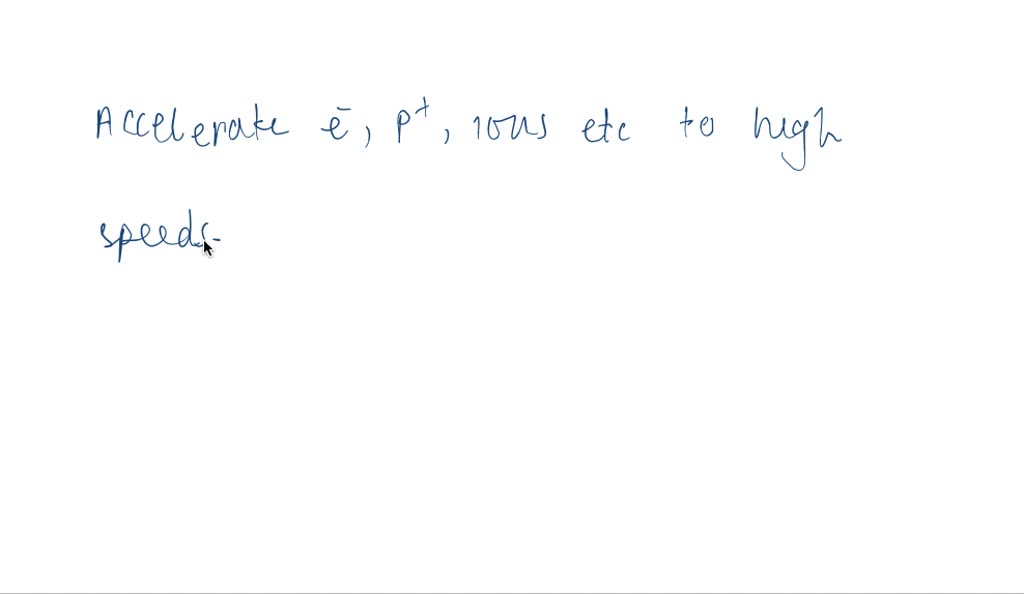 Accelerate ē, p⁺, ions etc to high
speeds.